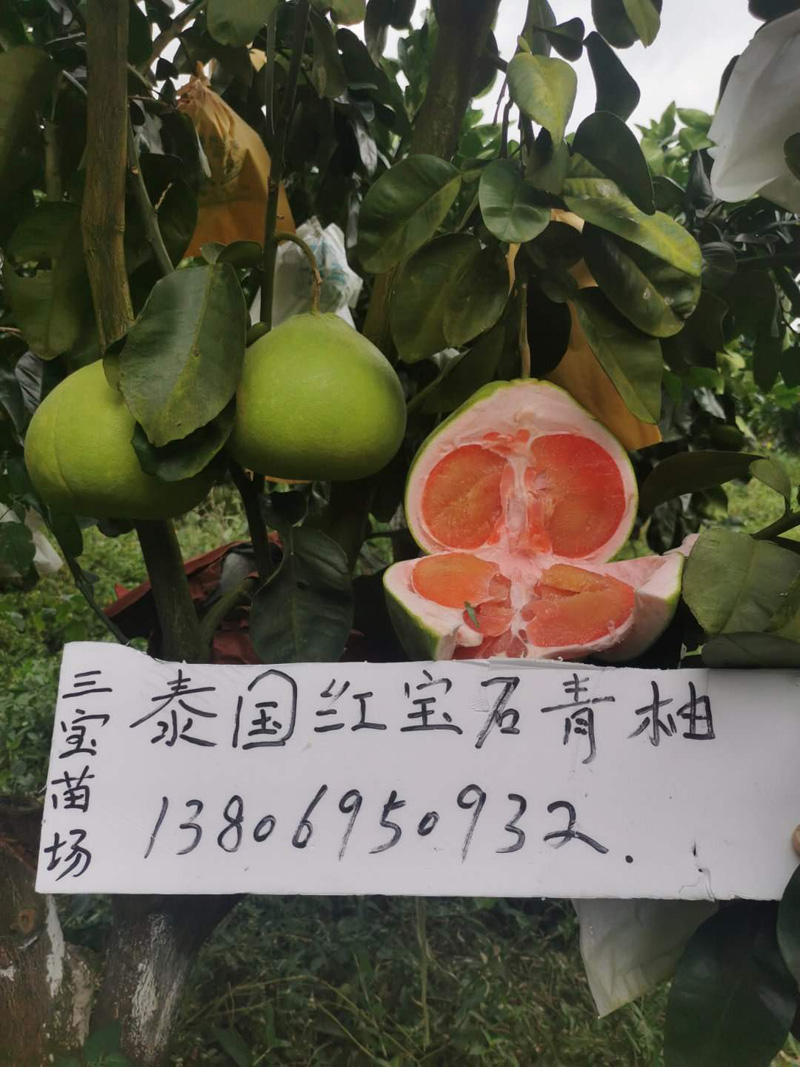 三宝苗场
泰国红宝石青柚
13806950932.